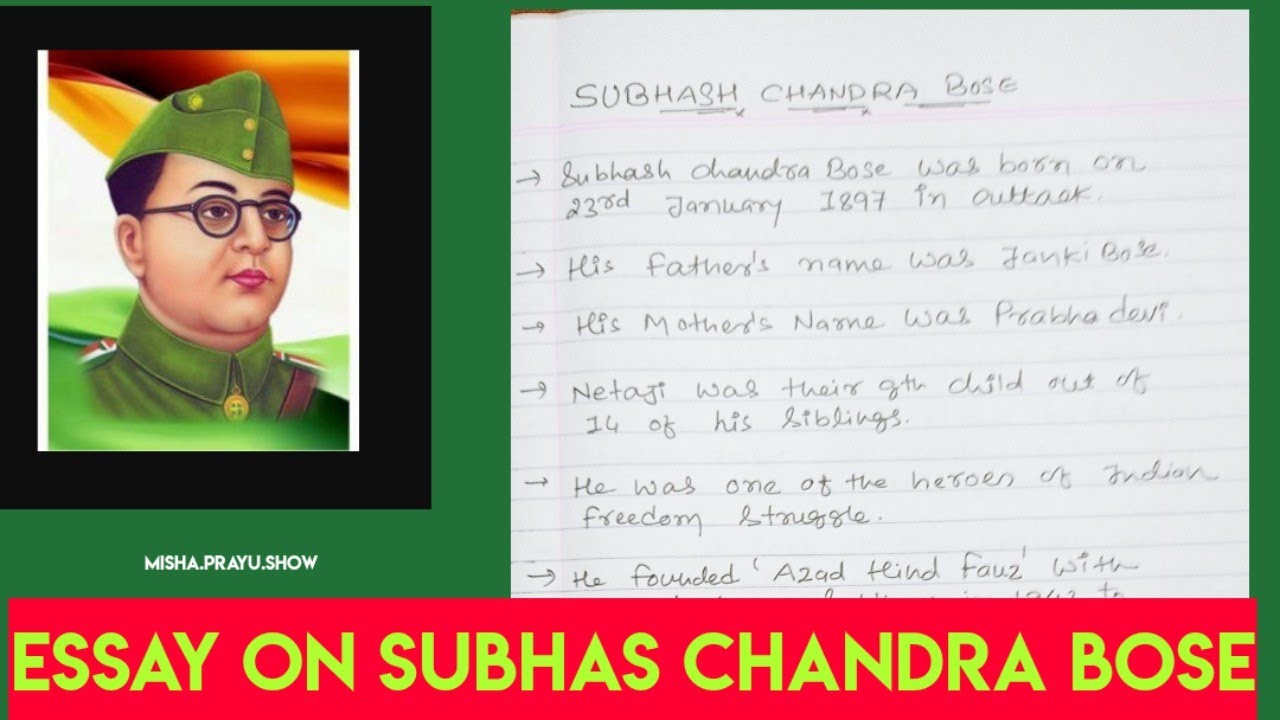 SUBHASH CHANDRA BOSE
→ Subhash Chandra Bose was born on
23rd January 1897 in Cuttack.
→ His Father's name was Janki Bose.
→ His Mother's Name was Prabha devi.
→ Netaji was their 9th child out of
14 of his siblings.
→ He was one of the heroes of Indian
freedom struggle.
→ He founded 'Azad Hind Fauz' with
MISHA.PRAYU.SHOW
ESSAY ON SUBHAS CHANDRA BOSE